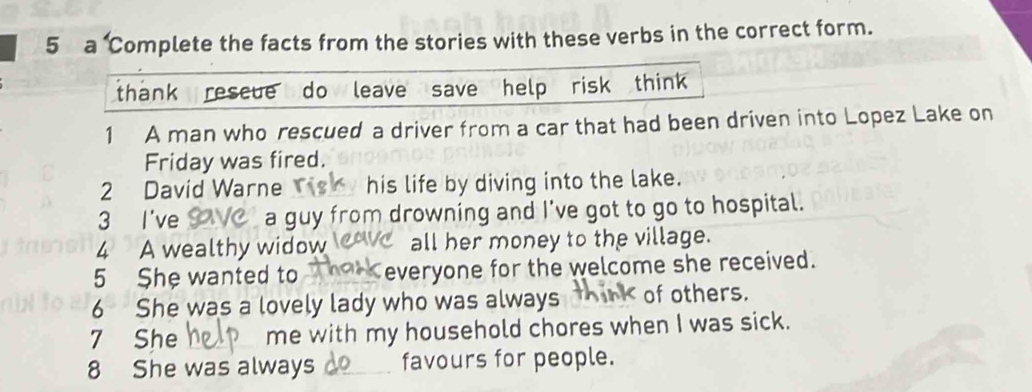 5 a Complete the facts from the stories with these verbs in the correct form.
thank rescue do leave save help risk think
1 A man who rescued a driver from a car that had been driven into Lopez Lake on
Friday was fired.
2 David Warne risk his life by diving into the lake.
3 I've save a guy from drowning and I've got to go to hospital.
4 A wealthy widow leave all her money to the village.
5 She wanted to thank everyone for the welcome she received.
6 She was a lovely lady who was always think of others.
7 She help me with my household chores when I was sick.
8 She was always do favours for people.